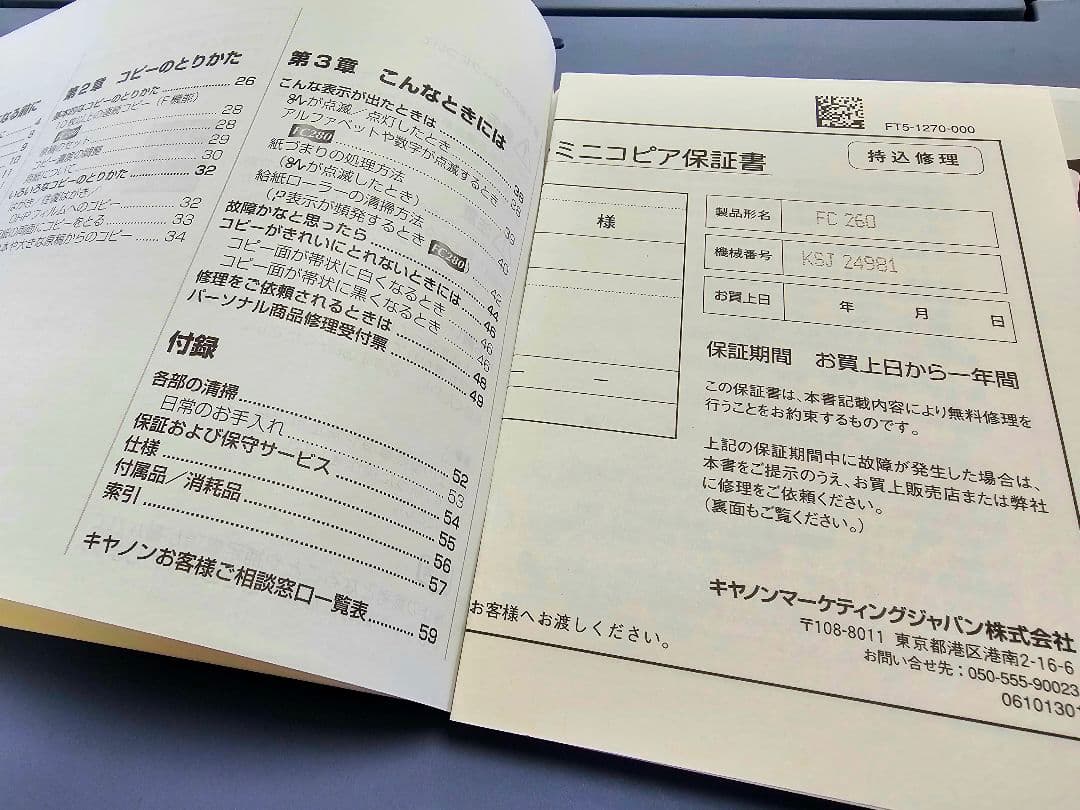 なる前に
4
8
9
10
11
第2章 コピーのとりかた
基本的なコピーのとりかた……26
10枚以上の連続コピー(F機能)
28
28
コピー濃度の調整 29
30
いろいろなコピーのとりかた 32
はがき/往復はがき/
OHPフィルムへのコピー 32
紙の両面にコピーをとる 33
本や大きな原稿からのコピー …… 34
第3章 こんなときには
こんな表示が出たときは
が点滅/点灯したとき 38
アルファベットや数字が点滅するとき 38
FC280
紙づまりの処理方法
(が点滅したとき) 39
給紙ローラーの清掃方法
(P表示が頻発するとき FC280) 40
故障かなと思ったら 42
コピーがきれいにとれないときには 44
コピー面が帯状に白くなるとき 46
コピー面が帯状に黒くなるとき 46
修理をご依頼されるときは 48
パーソナル商品修理受付票 49
付録
各部の清掃 52
日常のお手入れ 53
保証および保守サービス 54
仕様 55
付属品/消耗品 56
索引 57
キヤノンお客様ご相談窓口一覧表 59
FT5-1270-000
ミニコピア保証書
持込修理
様
製品形名 FC 260
機械番号 KSJ 24981
お買上日 年 月 日
保証期間 お買上日から一年間
この保証書は、本書記載内容により無料修理を
行うことをお約束するものです。
上記の保証期間中に故障が発生した場合は、
本書をご提示のうえ、お買上販売店または弊社
に修理をご依頼ください。
(裏面もご覧ください。)
キヤノンマーケティングジャパン株式会社
〒108-8011 東京都港区港南2-16-6
お問い合せ先:050-555-90023
0610130
お客様へお渡しください。